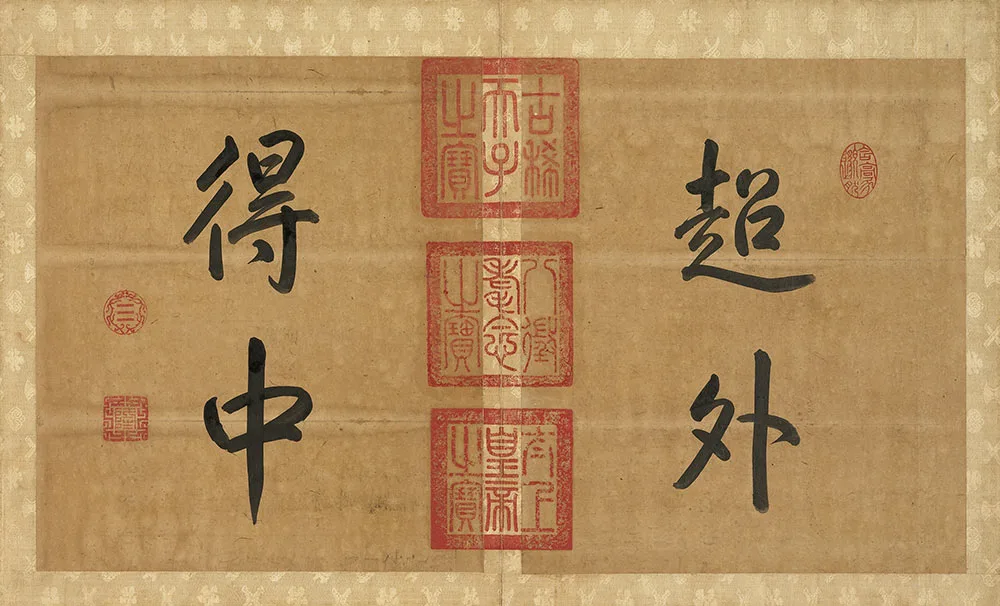 超外
古稀
天子
之寶
八徵
耄念
之寶
太上
皇帝
之寶
得中